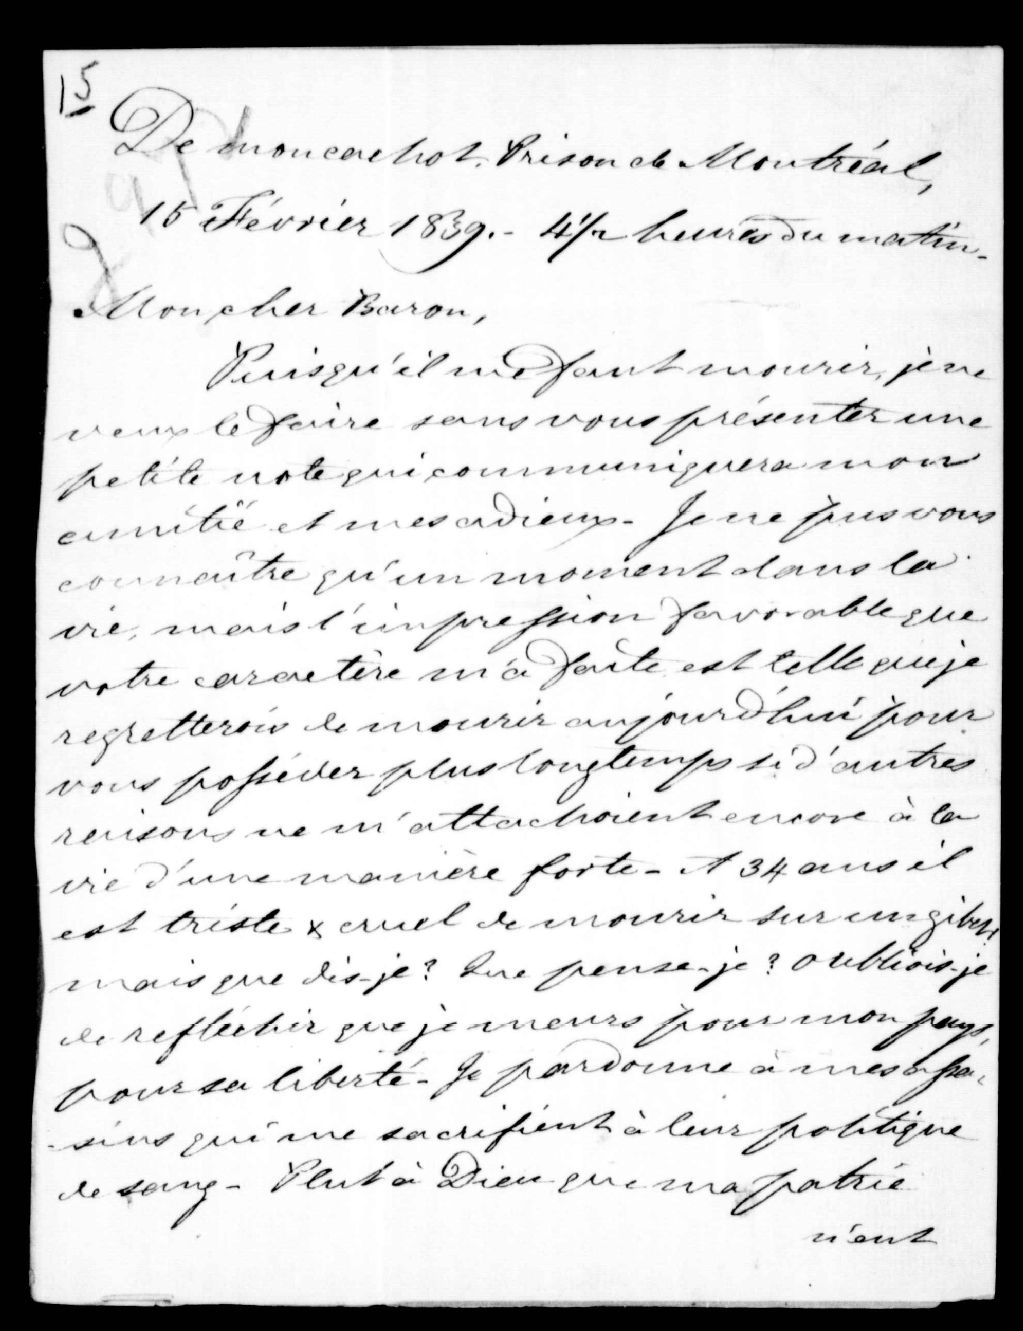 15
De mon cachot. Prison de Montréal,
15 Février 1839. - 4 1/2 heures du matin -
Mon cher Baron,
Puisqu'il me faut mourir, je ne
veux le faire sans vous présenter une
petite note qui communiquera mon
amitié et mes adieux - Je ne pus vous
connaître qu'un moment dans la
vie, mais l'impression favorable que
votre caractère m'a faite est telle que je
regretterois de mourir aujourd'hui pour
vous posséder plus longtemps si d'autres
raisons ne m'attachoient encore à la
vie d'une manière forte - A 34 ans il
est triste & cruel de mourir sur un gibet,
mais que dis-je? Que pense-je? oubliois-je
de refléchir que je meurs pour mon pays,
pour sa liberté - Je pardonne à mes assas-
-sins qui me sacrifient à leur politique
de sang - Plut à Dieu que ma patrie
n'eut